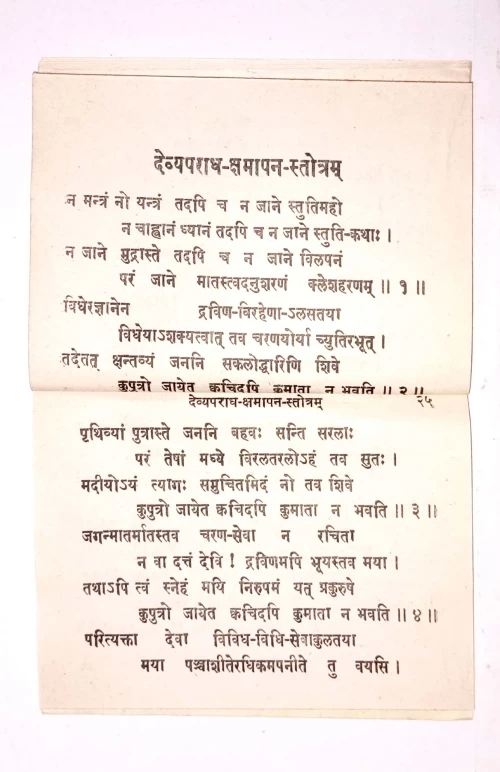 देव्यपराध-क्षमापन-स्तोत्रम्
न मन्त्रं नो यन्त्रं तदपि च न जाने स्तुतिमहो
न चाह्वानं ध्यानं तदपि च न जाने स्तुति-कथाः ।
न जाने मुद्रास्ते तदपि च न जाने विलपनं
परं जाने मातस्त्वदनुशरणं क्लेशहरणम् ॥ १ ॥
विधेरज्ञानेन द्रविण-विरहेणाऽलसतया
विधेयाऽशक्यत्वात् तव चरणयोर्या च्युतिरभूत् ।
तदेतत् क्षन्तव्यं जननि सकलोद्धारिणि शिवे
कुपुत्रो जायेत क्वचिदपि कुमाता न भवति ॥ २ ॥
देव्यपराध-क्षमापन-स्तोत्रम् २५
पृथिव्यां पुत्रास्ते जननि बहवः सन्ति सरलाः
परं तेषां मध्ये विरलतरलोऽहं तव सुतः ।
मदीयोऽयं त्यागः समुचितमिदं नो तव शिवे
कुपुत्रो जायेत क्वचिदपि कुमाता न भवति ॥ ३ ॥
जगन्मातर्मातस्तव चरण-सेवा न रचिता
न वा दत्तं देवि ! द्रविणमपि भूयस्तव मया ।
तथाऽपि त्वं स्नेहं मयि निरुपमं यत् प्रकुरुषे
कुपुत्रो जायेत क्वचिदपि कुमाता न भवति ॥ ४ ॥
परित्यक्ता देवा विविध-विधि-सेवाकुलतया
मया पञ्चाशीतेरधिकमपनीते तु वयसि ।